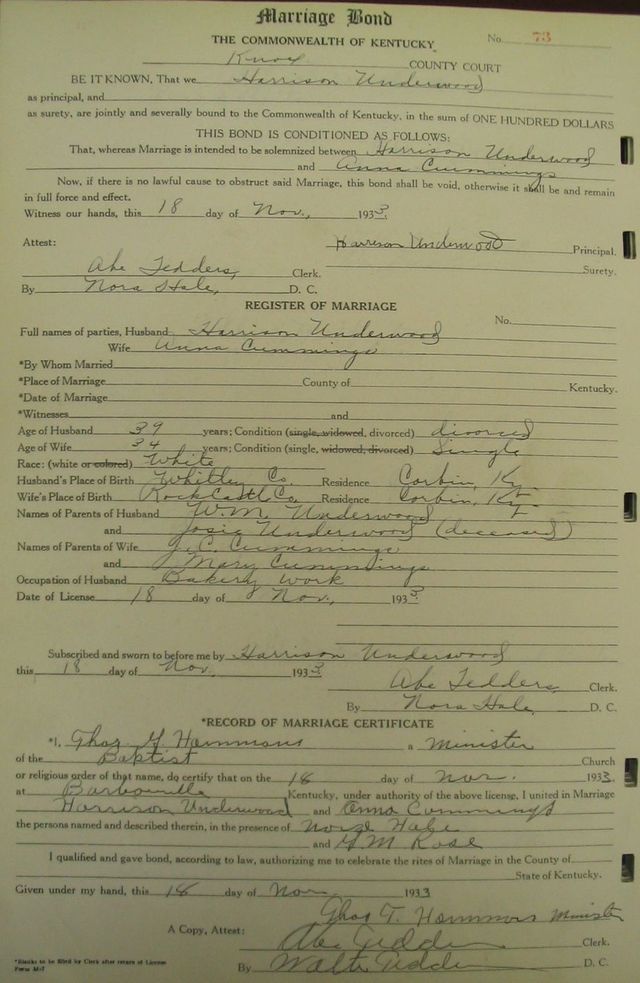 Marriage Bond
THE COMMONWEALTH OF KENTUCKY No. 73
Knox COUNTY COURT
BE IT KNOWN, That we Harrison Underwood
as principal, and
as surety, are jointly and severally bound to the Commonwealth of Kentucky, in the sum of ONE HUNDRED DOLLARS
THIS BOND IS CONDITIONED AS FOLLOWS:
That, whereas Marriage is intended to be solemnized between Harrison Underwood
and Anna Cummings
Now, if there is no lawful cause to obstruct said Marriage, this bond shall be void, otherwise it shall be and remain
in full force and effect.
Witness our hands, this 18 day of Nov, 1933.
Attest: Harrison Underwood Principal.
Abe Tedders, Clerk. Surety.
By Nora Hale, D. C.
REGISTER OF MARRIAGE
No.
Full names of parties, Husband Harrison Underwood
Wife Anna Cummings
*By Whom Married
*Place of Marriage County of Kentucky.
*Date of Marriage
*Witnesses and
Age of Husband 39 years; Condition (single, widowed, divorced) divorced
Age of Wife 34 years; Condition (single, widowed, divorced) Single
Race: (white or colored) White
Husband's Place of Birth Whitley Co. Residence Corbin, Ky
Wife's Place of Birth RockCastle Co Residence Corbin, Ky
Names of Parents of Husband W.M. Underwood
and Josie Underwood (deceased)
Names of Parents of Wife J. C. Cummings
and Mary Cummings
Occupation of Husband Bakery work
Date of License 18 day of Nov, 1933
Subscribed and sworn to before me by Harrison Underwood
this 18 day of Nov, 1933
Abe Tedders, Clerk.
By Nora Hale, D. C.
*RECORD OF MARRIAGE CERTIFICATE
*I, Chas. T. Hammons a Minister
of the Baptist Church
or religious order of that name, do certify that on the 18 day of Nov. 1933.
at Barbourville Kentucky, under authority of the above license, I united in Marriage
Harrison Underwood and Anna Cummings
the persons named and described therein, in the presence of Hale
and Rose
I qualified and gave bond, according to law, authorizing me to celebrate the rites of Marriage in the County of
State of Kentucky.
Given under my hand, this 18 day of Nov 1933
Chas T. Hammons Minister
A Copy, Attest: Abe Tedders Clerk.
*Blanks to be filled by Clerk after return of License
Form M-7 By Walter Tedders D. C.